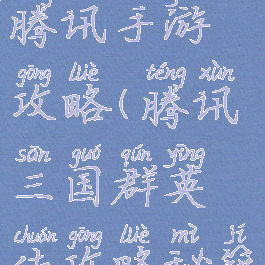 腾讯手游
gōng lüè téng xùn
攻略(腾讯
sān guó qún yīng
三国群英
chuán gōng lüè mì jí
传攻略秘籍